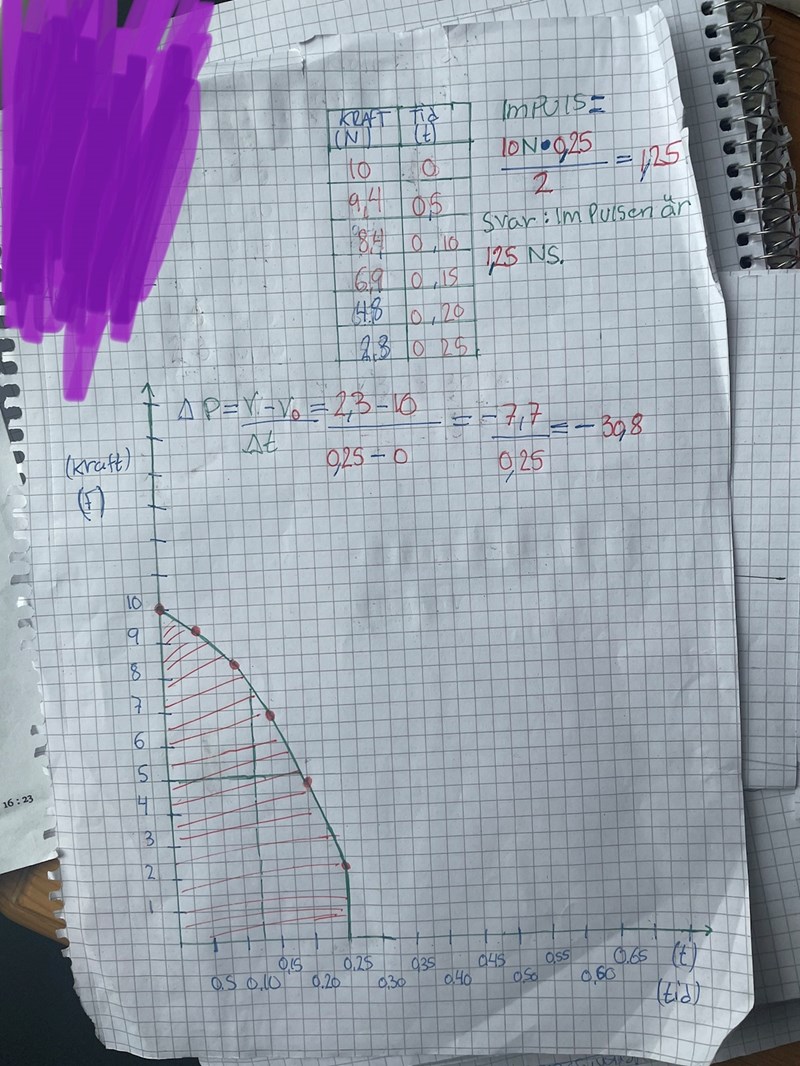 KRAFT (N) Tid (t)
10 0
9,4 0,5
8,4 0,10
6,9 0,15
4,8 0,20
2,3 0 25
ImPULS=
10N•0,25 / 2 = 1,25
Svar: Im Pulsen är
1,25 NS.
Δ P = V - V₀ / Δt = 2,3-10 / 0,25-0 = -7,7 / 0,25 = -30,8
(Kraft)
(F)
10
9
8
7
6
5
4
3
2
1
0,5 0,10 0,15 0,20 0,25 0,30 0,35 0,40 0,45 0,50 0,55 0,60 0,65 (t)
(tid)
16:23